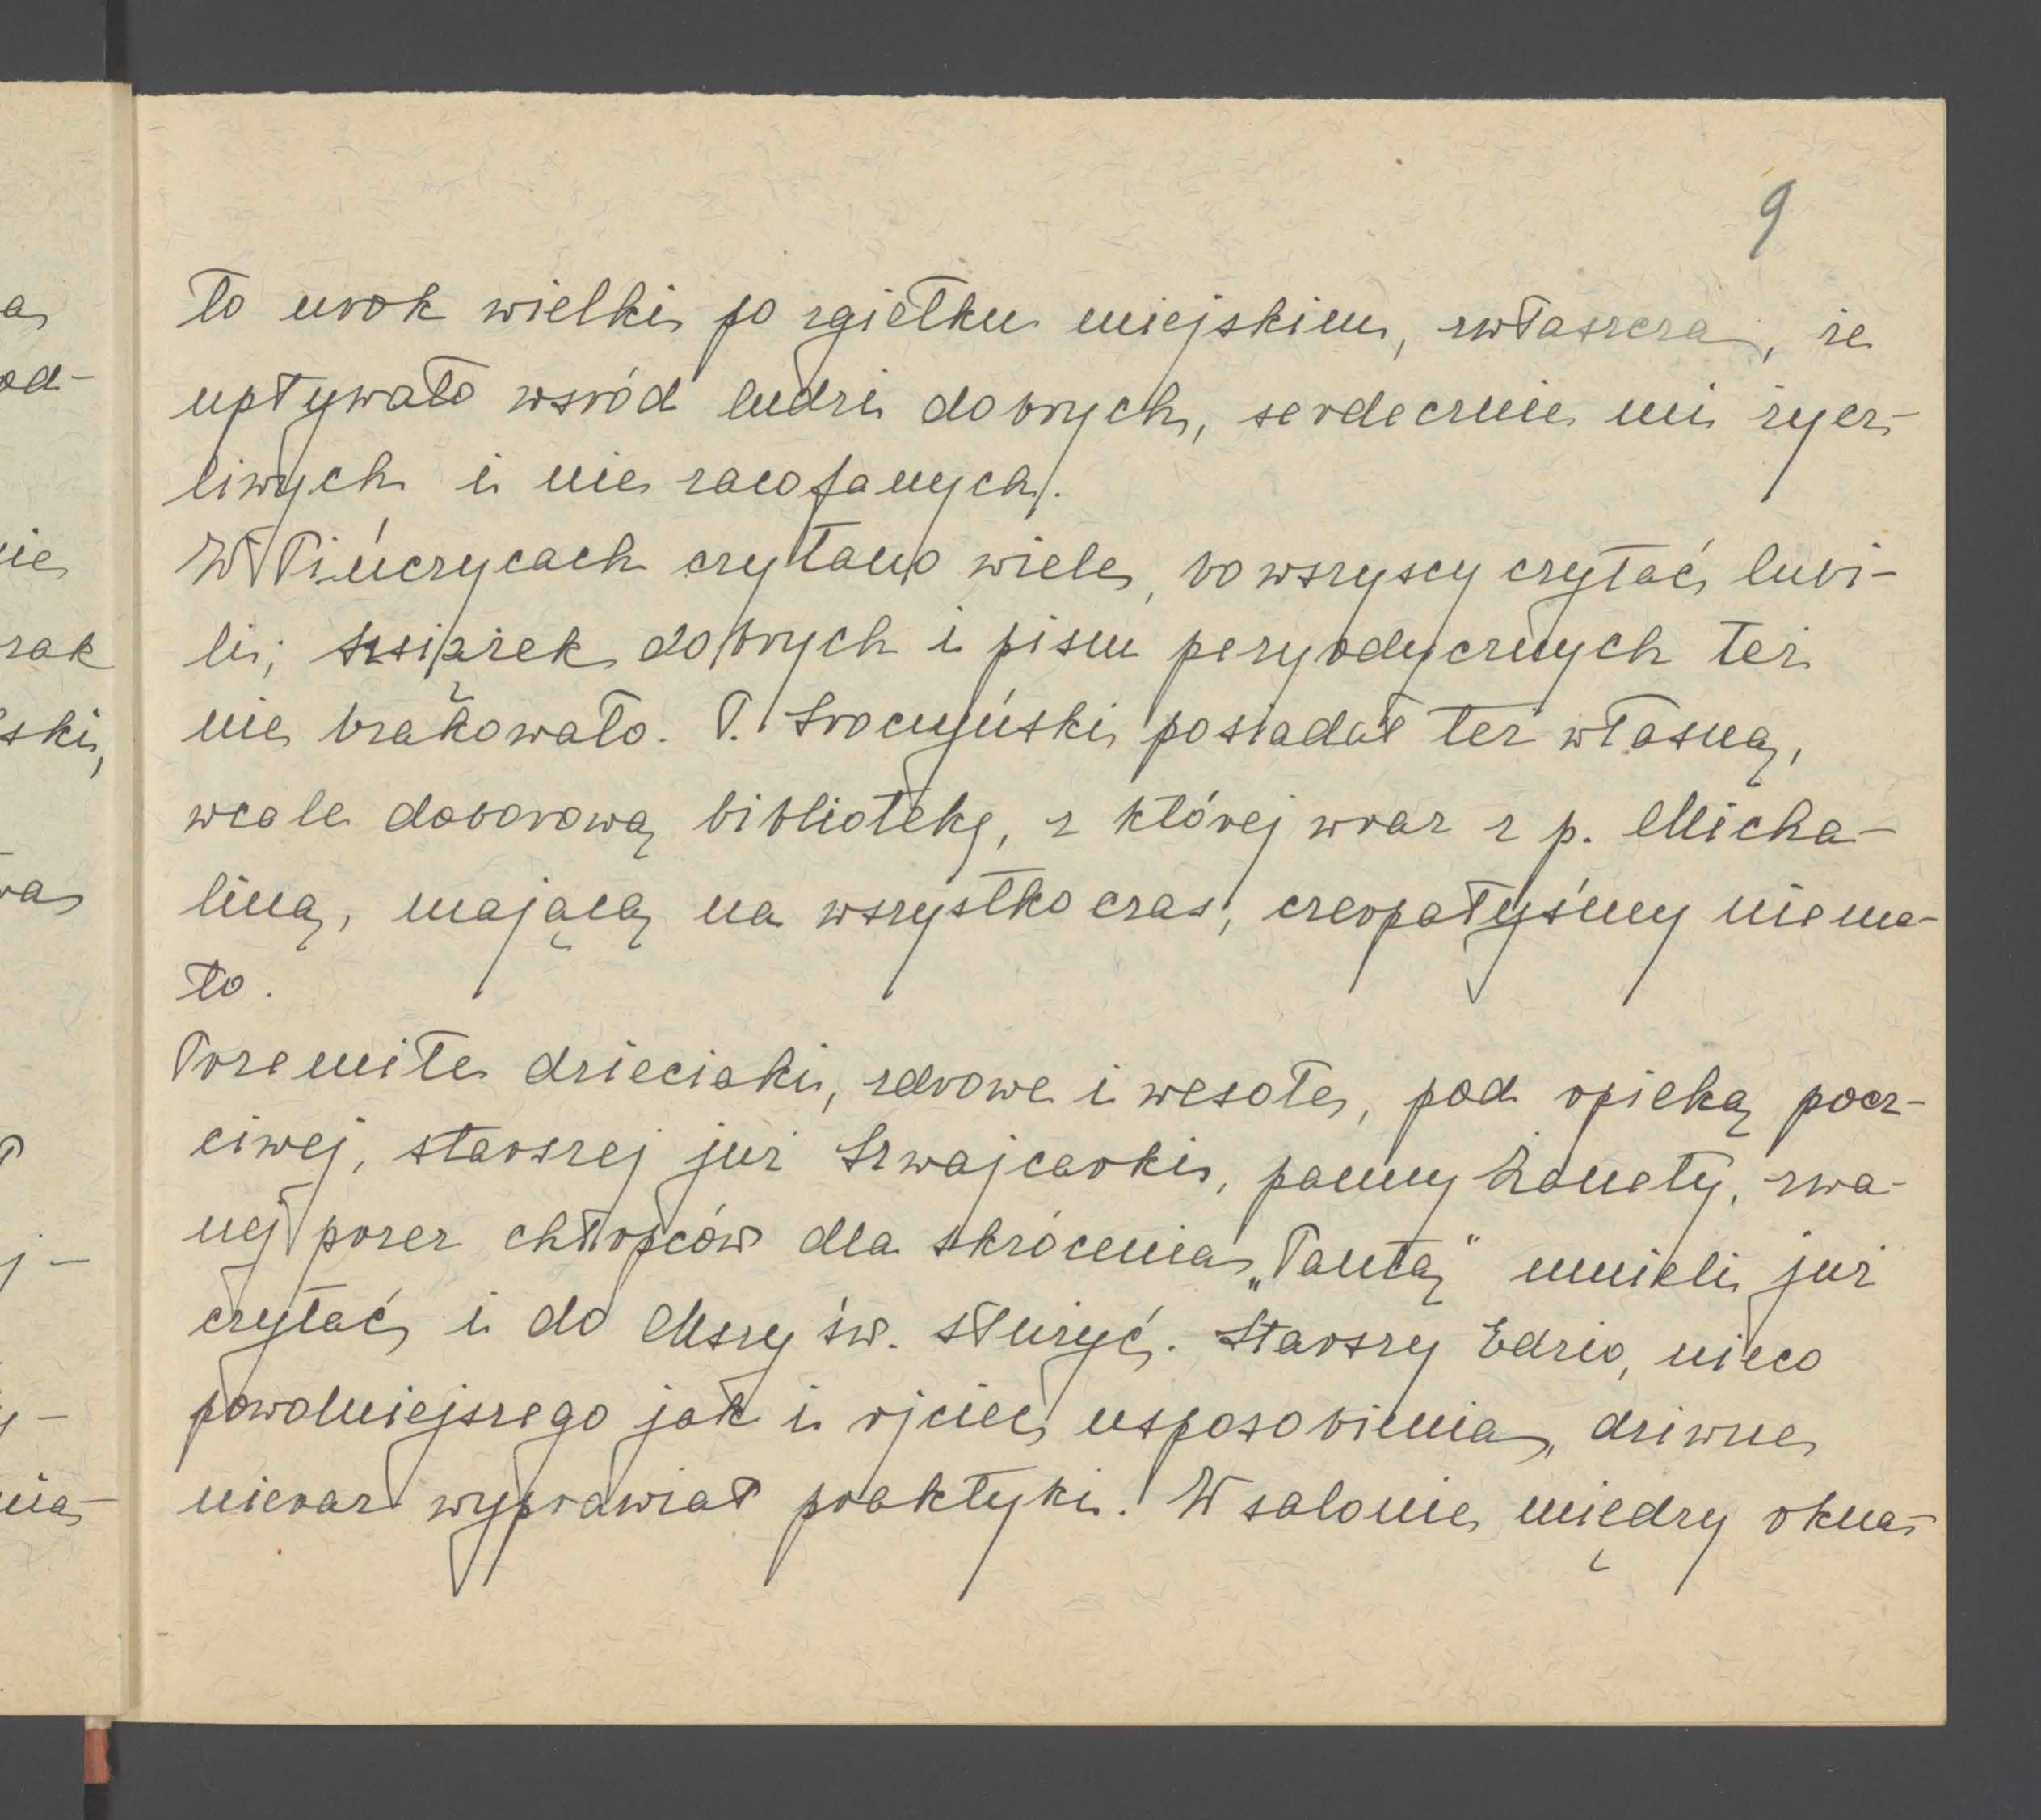 9
to urok wielki po zgiełku miejskim, zwłaszcza, że
upływało wsród ludzi dobrych, serdecznie mi życz-
liwych i nie zacofanych.
W Pińczycach czytano wiele, bo wszyscy czytać lubi-
li; książek dobrych i pism peryodycznych też
nie brakowało. P. Sroczyński posiadał też własną,
wcale doborową bibliotekę, z której wraz z p. Micha-
liną, mającą na wszystko czas, czerpałyśmy niema-
ło.
Przemiłe dzieciaki, zdrowe i wesołe, pod opieką pocz-
ciwej, starszej już Szwajcarki, panny Żanety, zwa-
nej przez chłopców dla skrócenia „Tantą" umieli już
czytać i do Mszy św. służyć. Starszy Edzio, nieco
powolniejszego jak i ojciec usposobienia, dziwne
nieraz wyprawiał praktyki. W salonie, między okna-
a
od-
nie
rak
ski,
wa
j-
y-
nia-